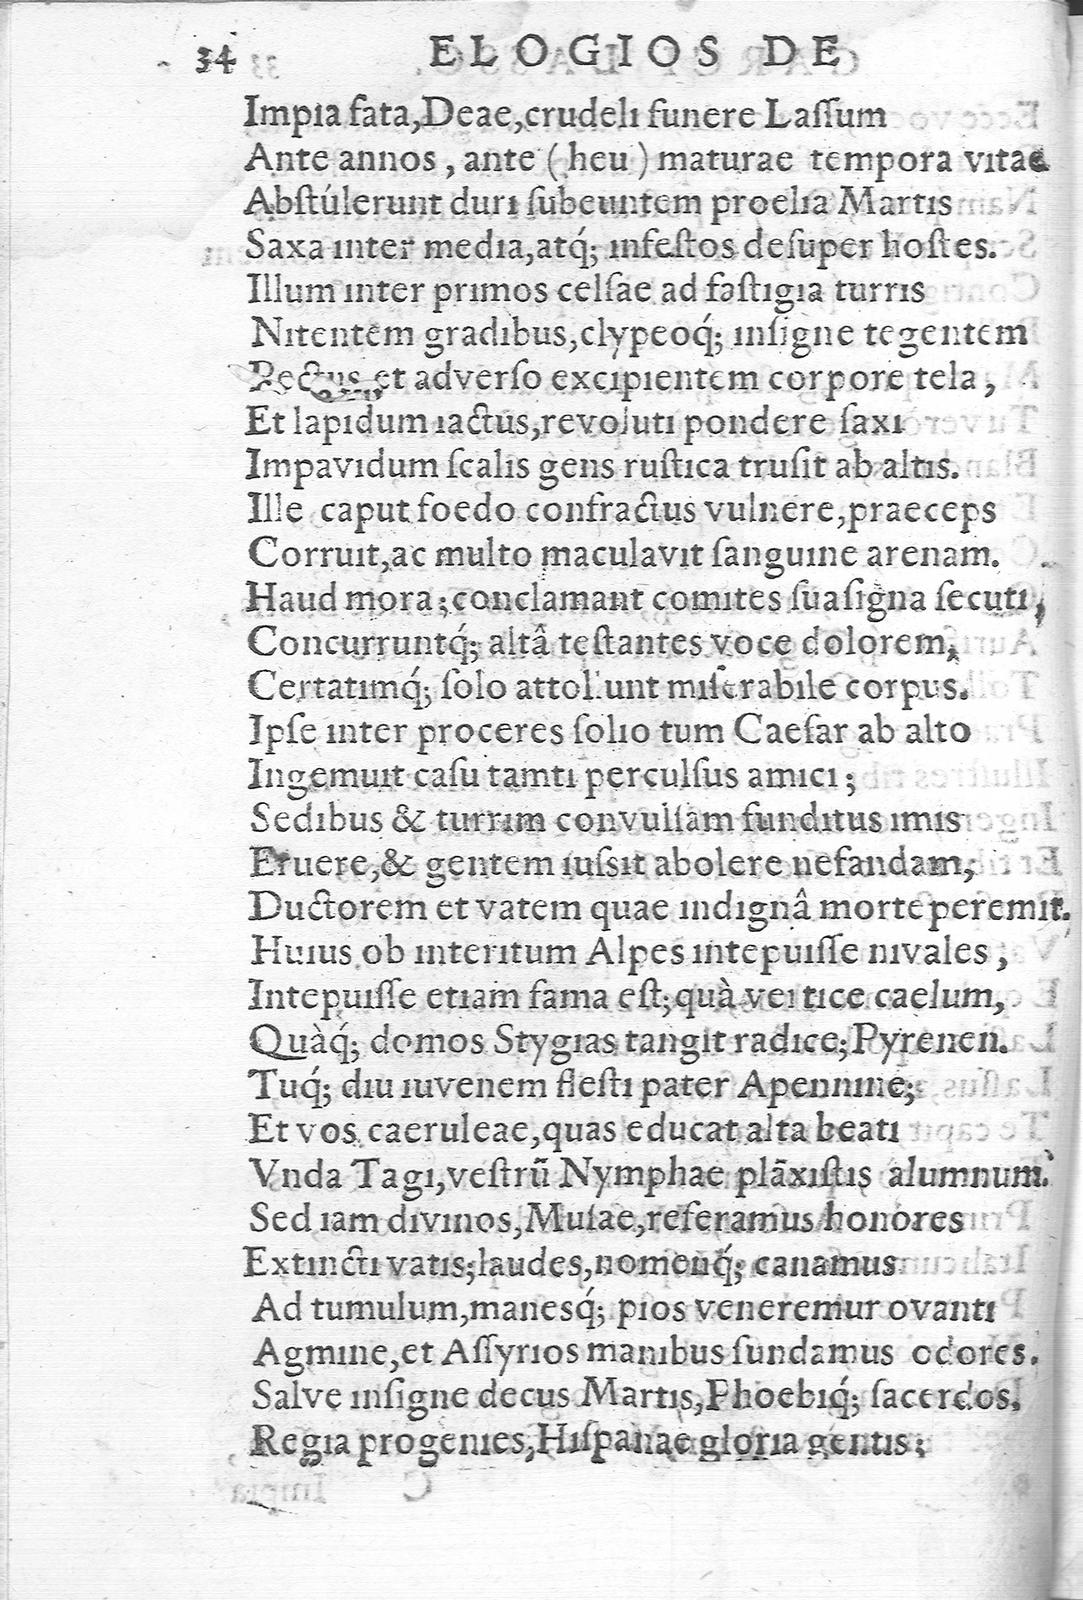 34 ELOGIOS DE
Impia fata,Deae,crudeli funere Laſſum
Ante annos, ante (heu) maturae tempora vitae
Abſtúlerunt duri ſubeuntem proelia Martis
Saxa inter media,atq́; infeſtos deſuper hoſtes.
Illum inter primos celſae ad faſtigia turris
Nitentem gradibus,clypeoq́; inſigne tegentem
Pectus et adverſo excipientem corpore tela,
Et lapidum iactus,revoluti pondere ſaxi
Impavidum ſcalis gens ruſtica truſit ab altis.
Ille caput foedo confractus vulnere,praeceps
Corruit,ac multo maculavit ſanguine arenam.
Haud mora;conclamant comites ſua ſigna ſecuti,
Concurruntq́; altâ teſtantes voce dolorem,
Certatimq́; ſolo attollunt miſerabile corpus.
Ipſe inter proceres ſolio tum Caeſar ab alto
Ingemuit caſu tamti perculſus amici;
Sedibus & turrim convulſam funditus imis
Eruere,& gentem iuſsit abolere nefandam,
Ductorem et vatem quae indignâ morte peremit.
Huius ob interitum Alpes intepuiſſe nivales,
Intepuiſſe etiam fama eſt;quà vertice caelum,
Quàq́; domos Stygias tangit radice;Pyrenen.
Tuq́; diu iuvenem fleſti pater Apennine;
Et vos caeruleae,quas educat alta beati
Vnda Tagi,veſtrũ Nymphae plãxiſtis alumnum.
Sed iam divinos,Muſae,referamus honores
Extincti vatis;laudes,nomenq́; canamus
Ad tumulum,manesq́; pios veneremur ovanti
Agmine,et Aſſyrios manibus fundamus odores.
Salve inſigne decus Martis,Phoebiq́; ſacerdos,
Regia progenies,Hiſpanae gloria gentis;